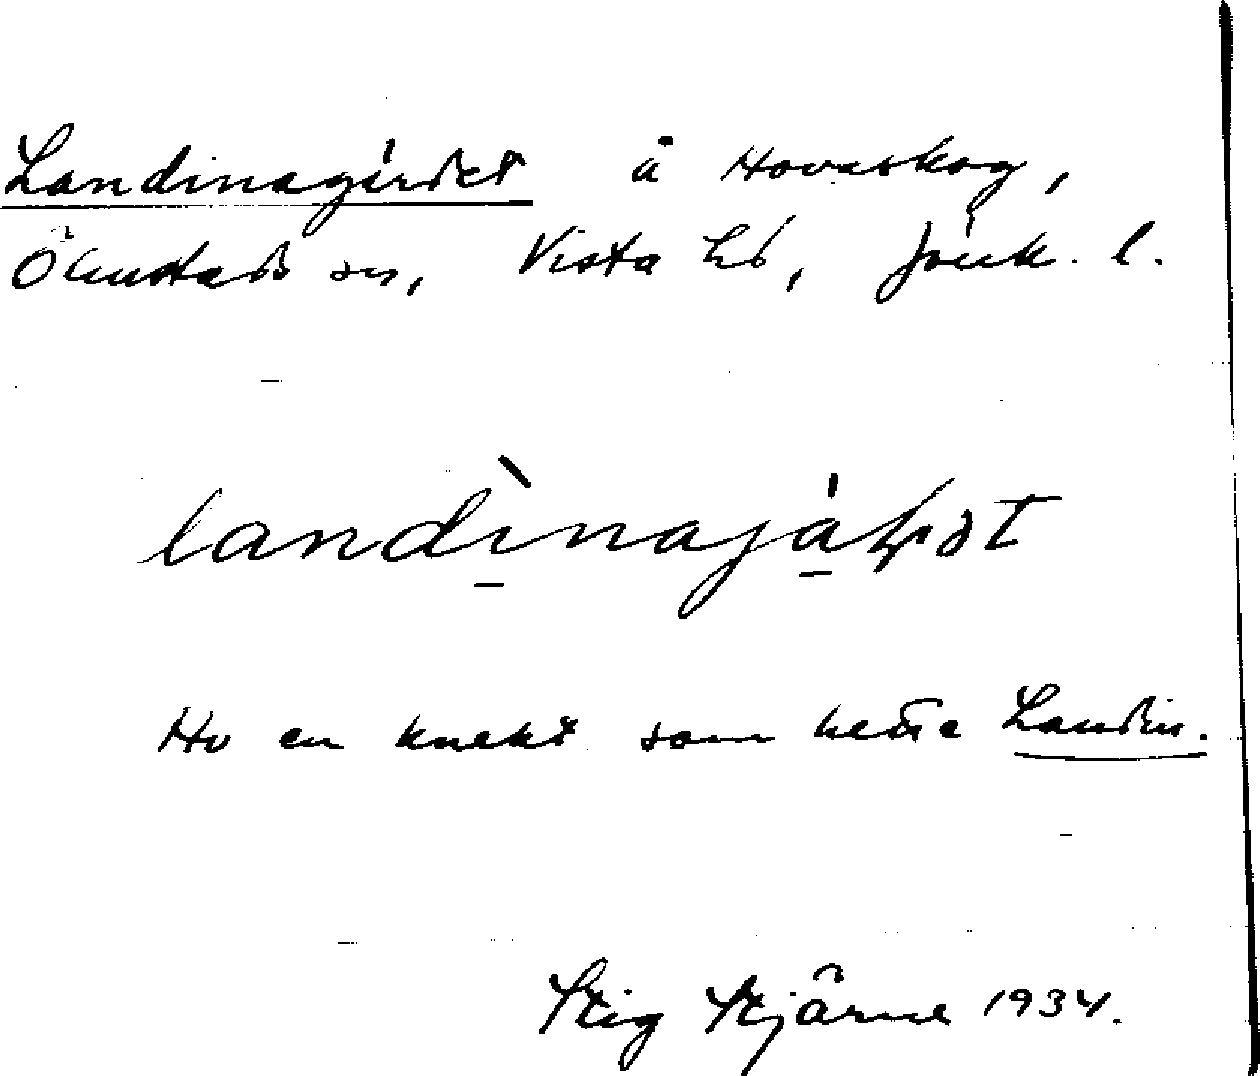 Landinagärdet å Hovaskog,
Ölmstads sn, Vista hd, Jönk. l.
landìnajáḷət
Ho en knekt som hette Landin.
Stig Stjärne 1934.